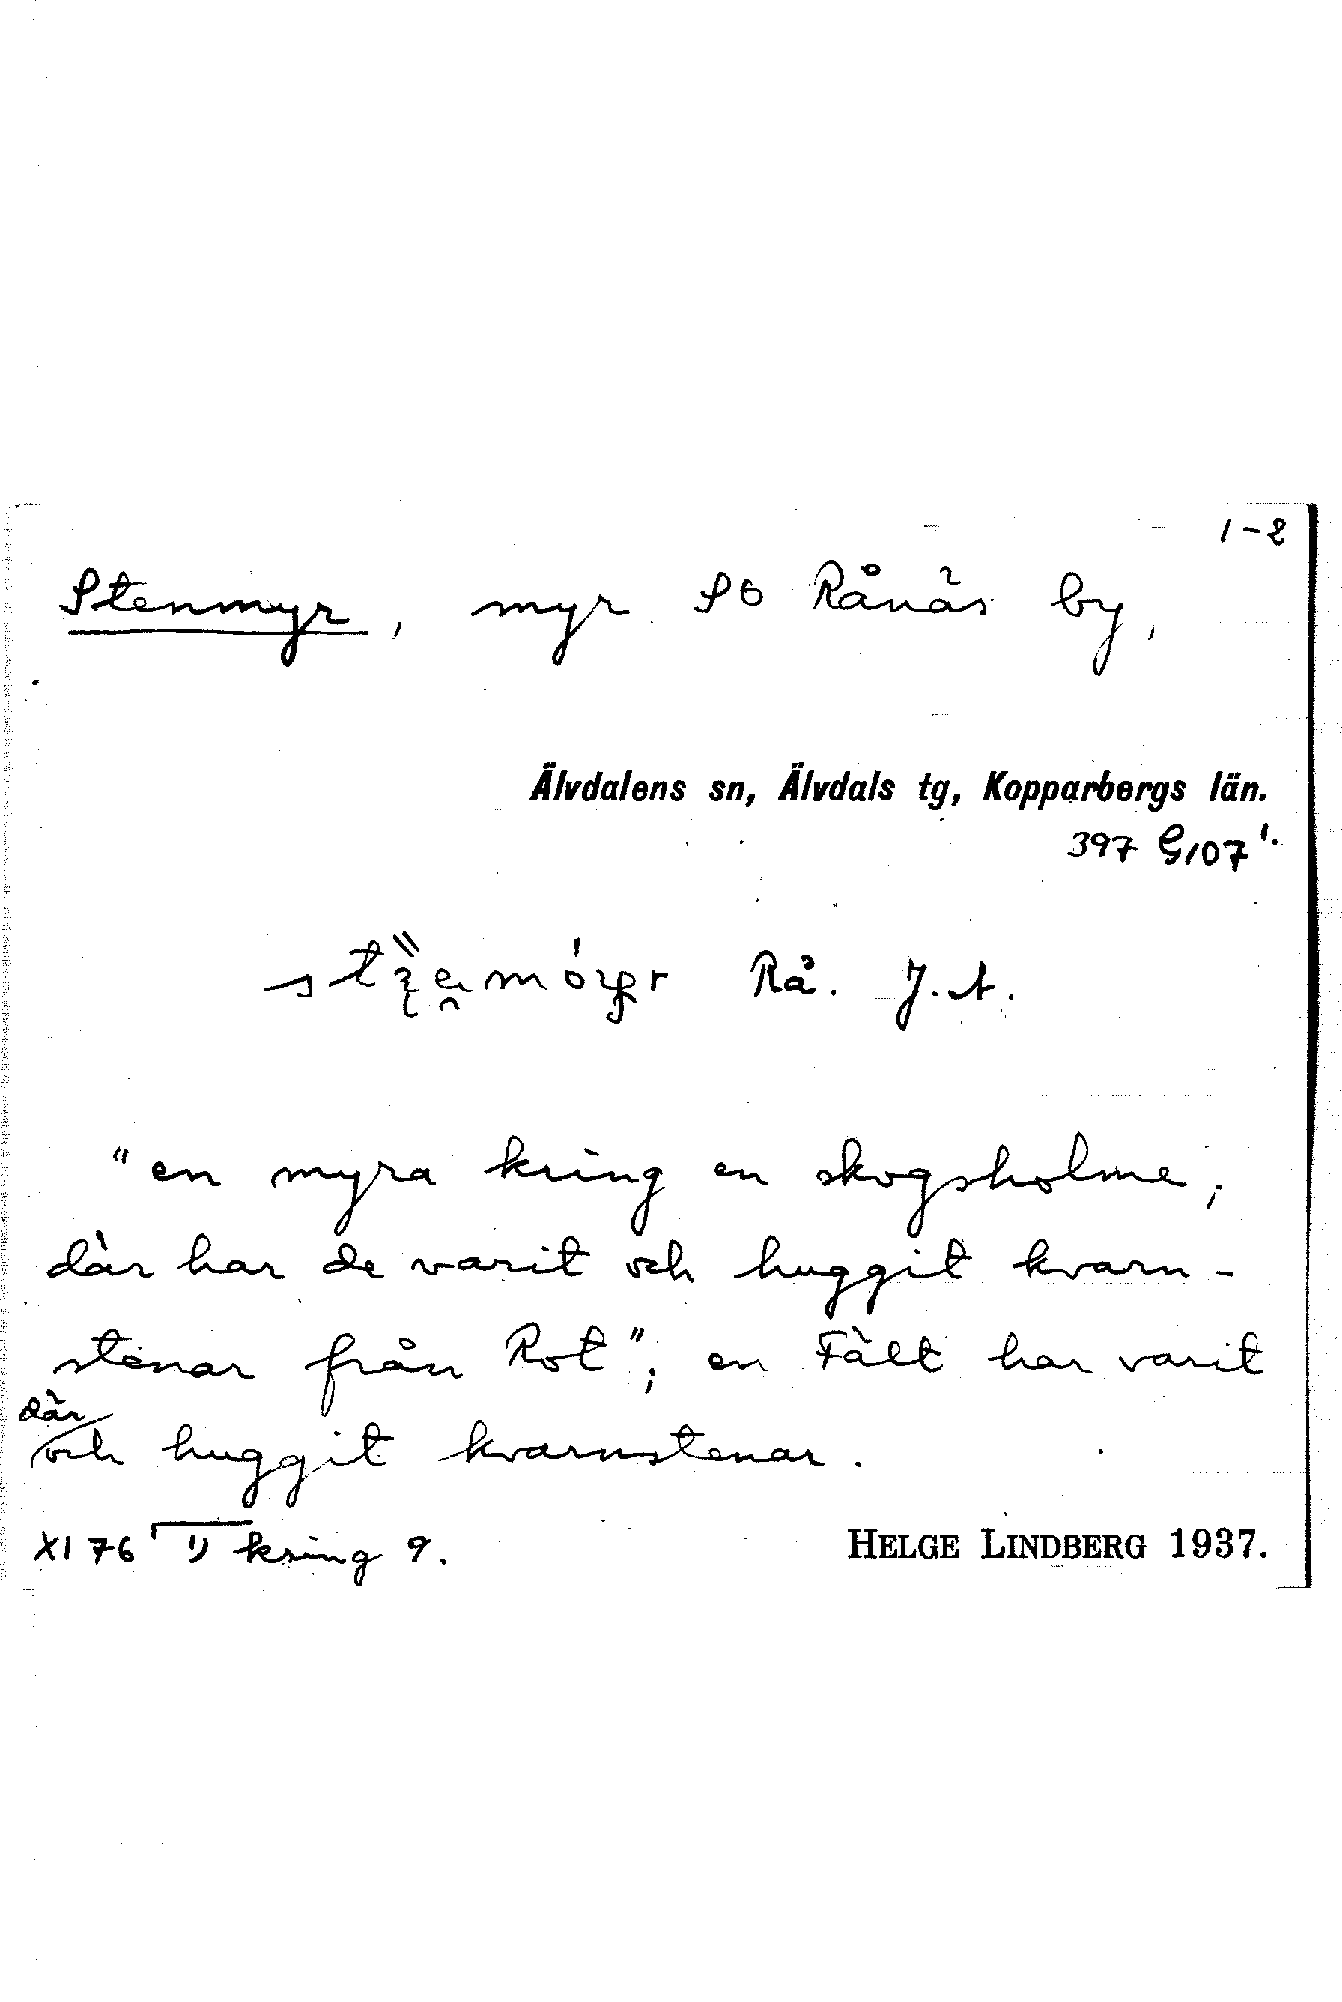 1-2
Stenmyr, myr SO Rånäs by,
Älvdalens sn, Älvdals tg, Kopparbergs län.
397 G107 1.
Rå. J.A.
"en myra kring en skogsholme;
där har de varit och huggit kvarn-
stenar från Rot"; en Fält har varit
där
och huggit kvarnstenar.
XI 76 1) kring 9.
HELGE LINDBERG 1937.